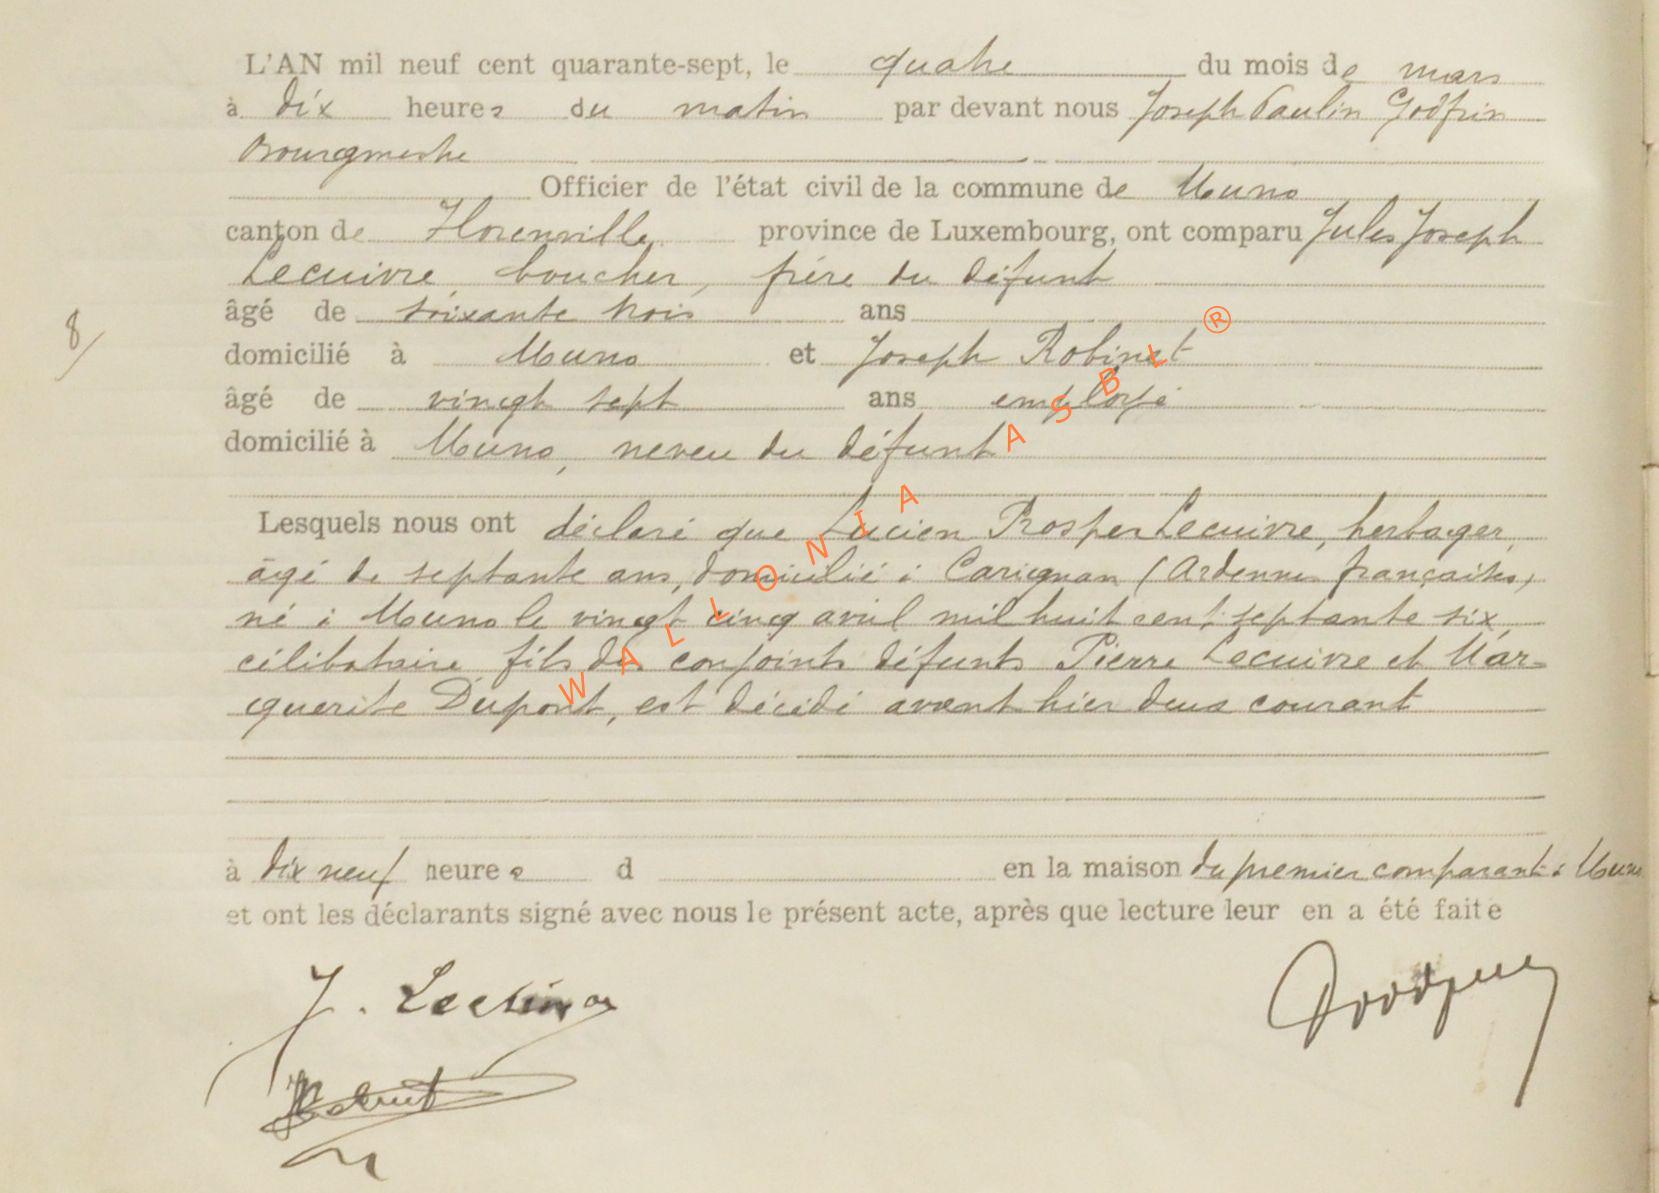 L'AN mil neuf cent quarante-sept, le quatre du mois de mars
à dix heures du matin par devant nous Joseph Paulin Godfrin
Bourgmestre
Officier de l'état civil de la commune de Muno
canton de Florenville province de Luxembourg, ont comparu Jules Joseph
Lecuivre, boucher, frère du défunt
âgé de soixante trois ans
8/
domicilié à Muno et Joseph Robinet
âgé de vingt sept ans employé
domicilié à Muno, neveu du défunt
Lesquels nous ont déclaré que Lucien Prosper Lecuivre, herbager,
âgé de septante ans, domicilié à Carignan (Ardennes françaises)
né à Muno le vingt cinq avril mil huit cent septante six,
célibataire fils des conjoints défunts Pierre Lecuivre et Mar-
guerite Dupont, est décédé avant hier deux courant
à dix neuf heures d en la maison du premier comparant à Muno
et ont les déclarants signé avec nous le présent acte, après que lecture leur en a été faite
J. Lecuivre
WALLONIA ASBL ®